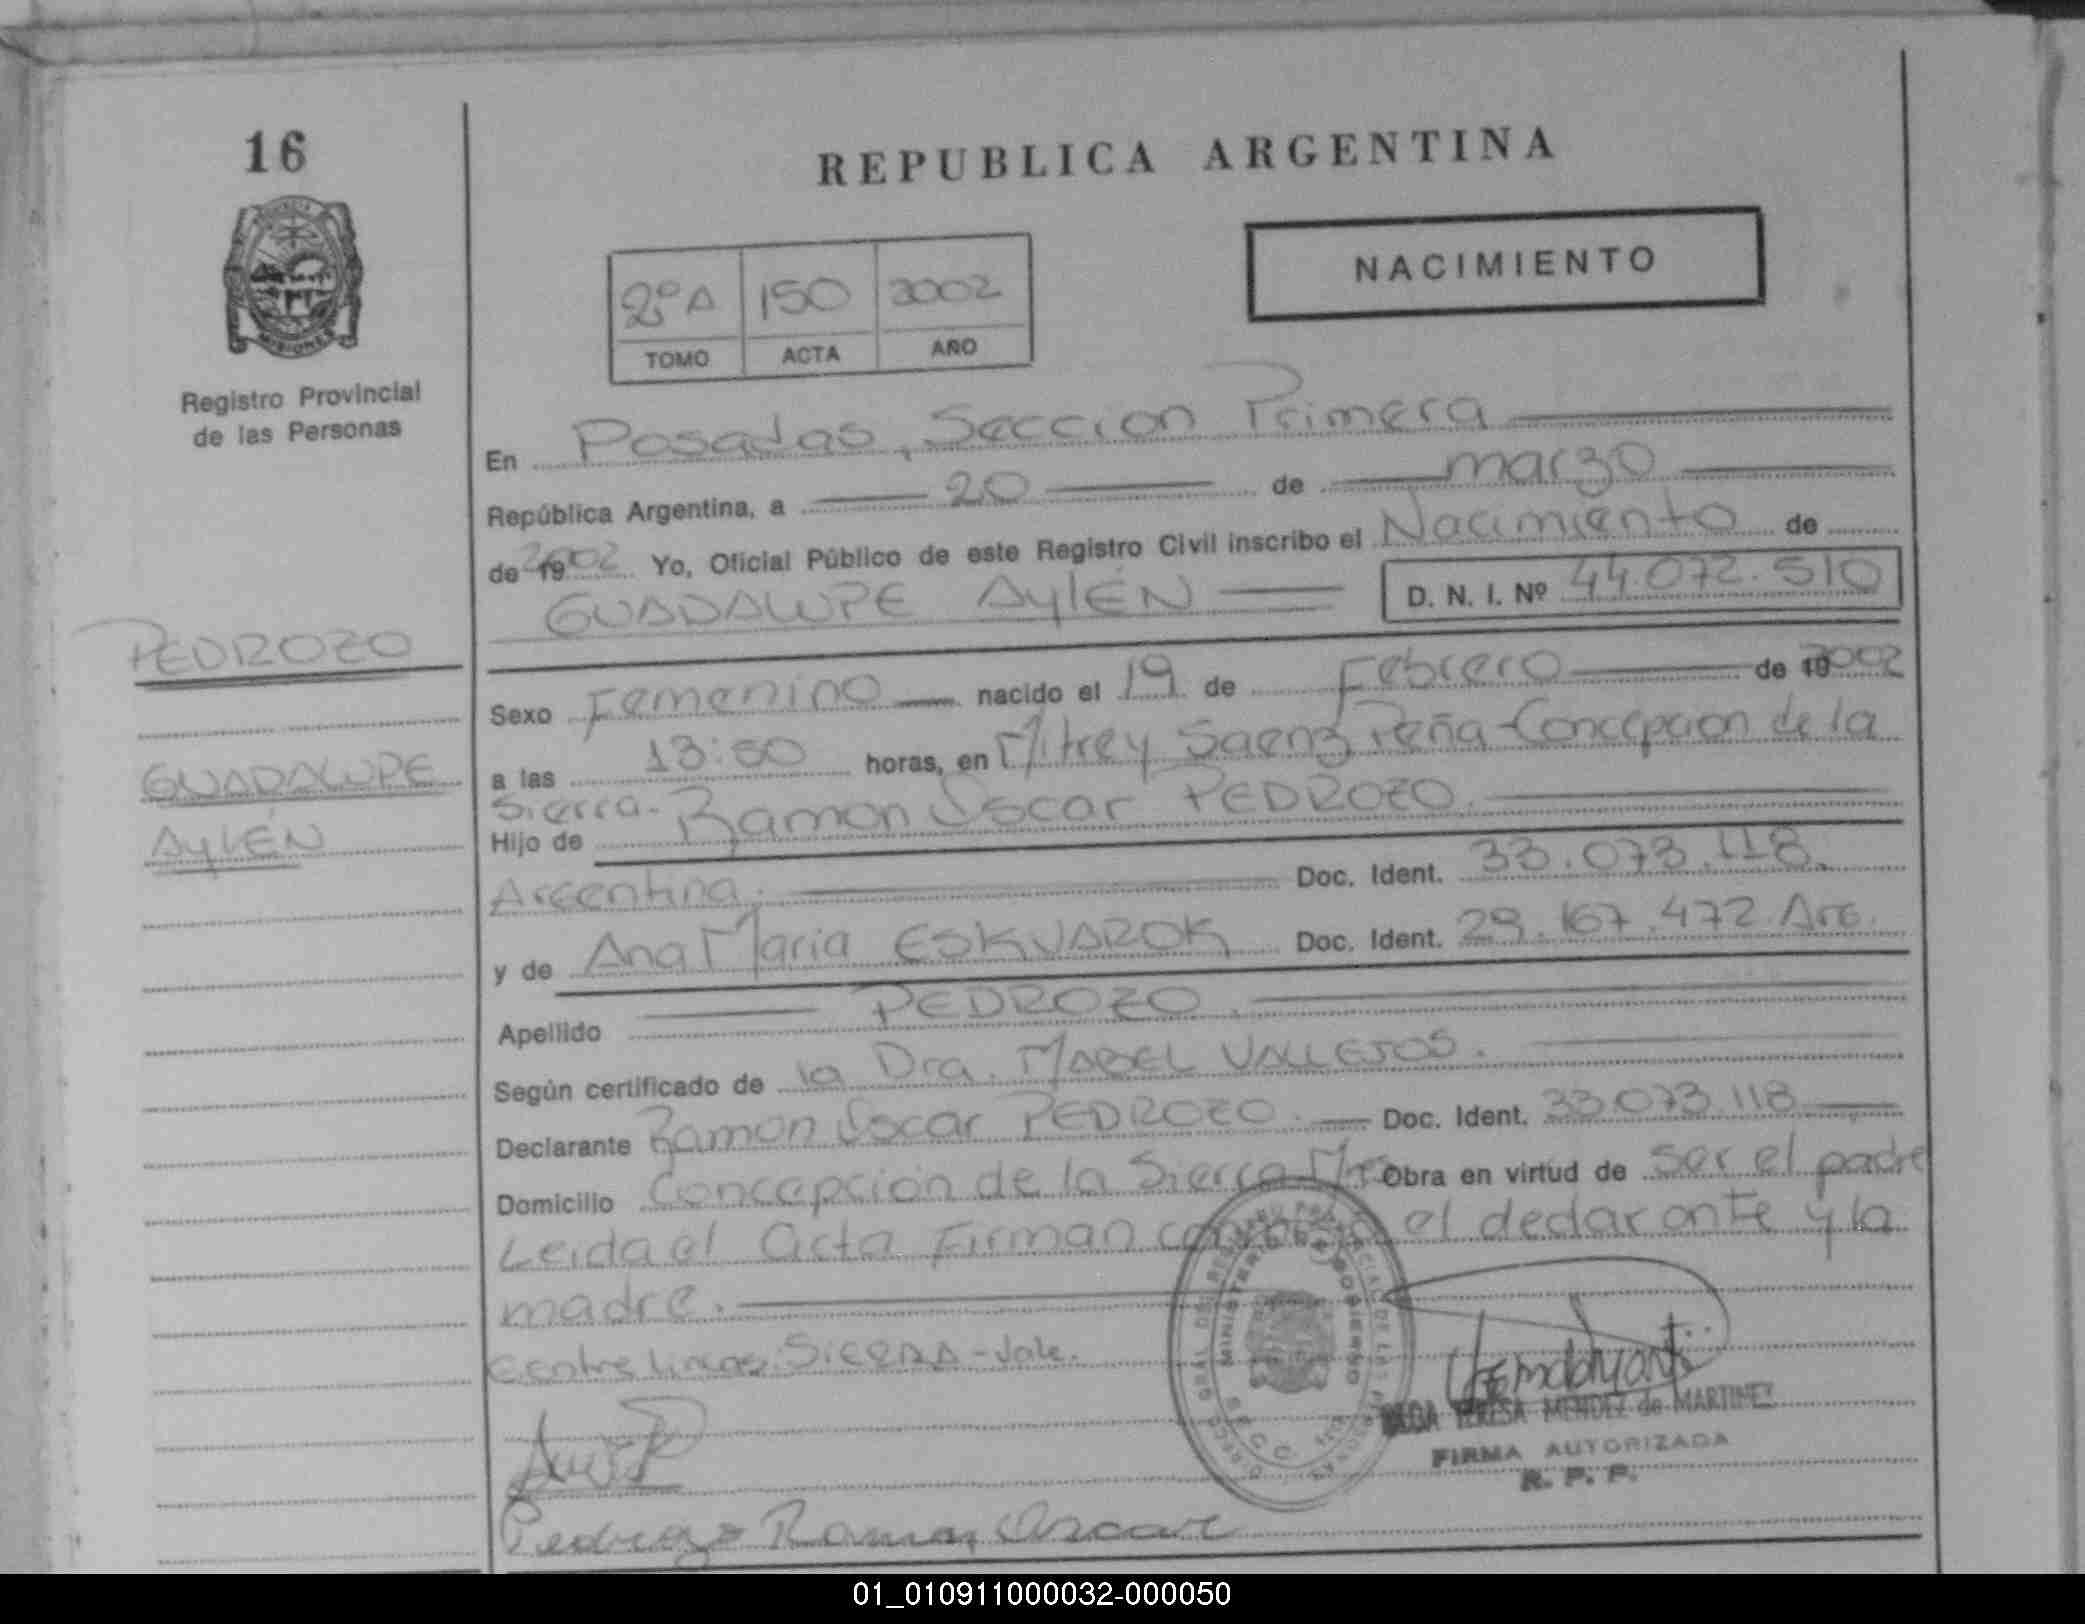 16
REPUBLICA ARGENTINA
NACIMIENTO
2º A 150 2002
TOMO ACTA AÑO
MISIONES
Registro Provincial
de las Personas
En Posadas, Seccion Primera
República Argentina, a 20 de marzo
de 19 2002 Yo, Oficial Público de este Registro Civil inscribo el Nacimiento de
GUADALUPE AylÉN D. N. I. Nº 44.072.510
PEDROZO
GUADALUPE
AylÉN
Sexo Femenino nacido el 19 de Febrero de 19 2002
a las 13:50 horas, en Mitre y Saenz Peña - Concepcion de la
Sierra.
Hijo de Ramon Oscar PEDROZO.
Argentina. Doc. Ident. 33.073.118.
y de Ana Maria ESKUAROK Doc. Ident. 29.167.472. Arg.
Apellido PEDROZO.
Según certificado de la Dra. MABEL VALLEJOS.
Declarante Ramon Oscar PEDROZO. Doc. Ident. 33.073.118
Domicilio Concepción de la Sierra Mnes Obra en virtud de ser el padre
Leida el acta Firman conmigo el declarante y la
madre.
Entre lineas: Sierra - Vale.
MINISTERIO DE GOBIERNO
TERESA MENDEZ de MARTINEZ
FIRMA AUTORIZADA
R. P. P.
Pedrozo Ramon Oscar
01_010911000032-000050